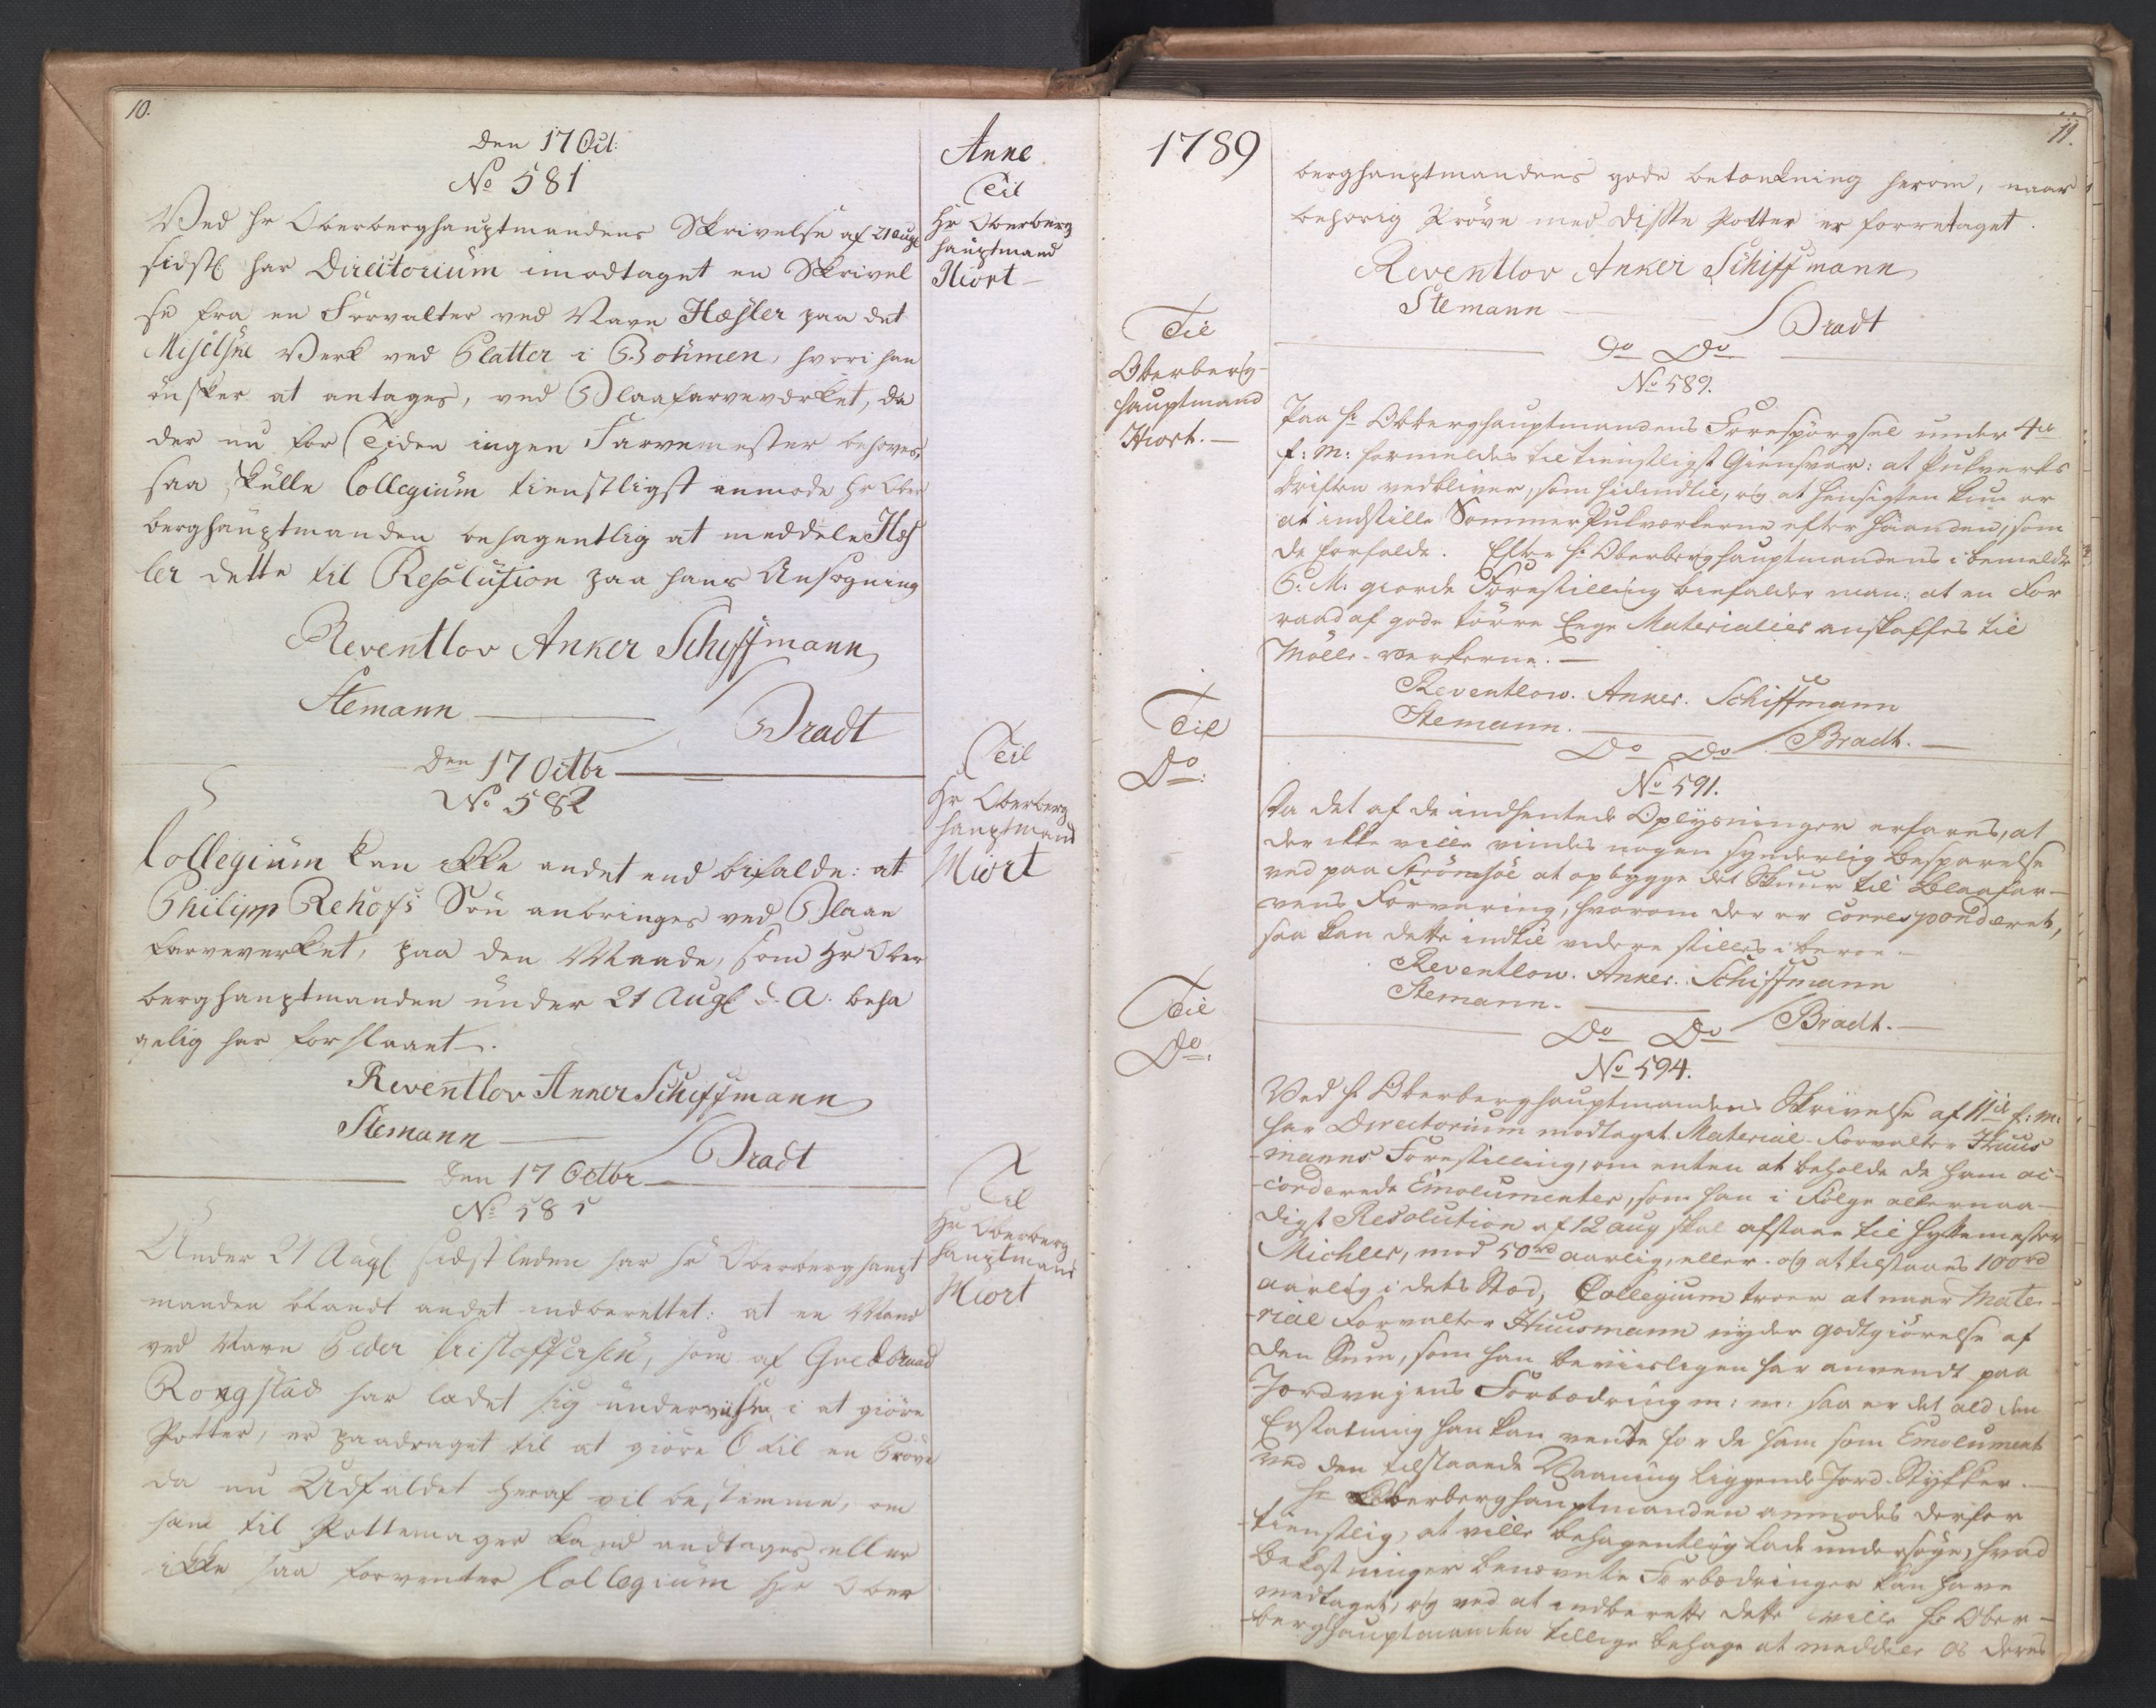 10.
Den 17 Oct:
No 581
Ved Hr Oberberghauptmandens Skrivelse af 21 Augl
sidstl har Directorium imodtaget en Skrivel
se fra en Forvalter ved Navn Hæsler paa det
Verk ved Platter i Böhmen, hvori han
ønsker at antages, ved Blaafarveværket, da
der nu for Tiden ingen Farvemester behoves,
saa skulle Collegium tienstligst anmode Hr Ober
berghauptmanden behagentlig at meddele Hæs
ler dette til Resolution paa hans Ansøgning
Reventlov Anker Schiffmann
Stemann
Bradt
Den 17 Octbr
No 582
Collegium kan ikke andet end bifalde: at
Philipp Rehofs Søn anbringes ved Blaae
farveverket, paa den Maade, som Hr Ober
berghauptmanden under 21 Augl d. A. beha
gelig har forslaaet.
Reventlov Anker Schiffmann
Stemann
Bradt
Den 17 Octbr
No 585
Under 21 Augl sidstleden har Hr Oberberghaupt
manden blandt andet indberettet: at en Mand
ved Navn Peder Cristoffersen, som af Guldbrand
Rongstad har ladet sig underviise i at giöre
Potter, er paadraget til at giöre 6 til en Pröve
da nu Udfaldet heraf vil bestemme, om
han til Pottemager kand andtages eller
ikke saa forventer Collegium Hr Ober
Anne
Til
Hr Oberberg
hauptmand
Hiort
Til
Hr Oberberg
hauptmand
Hiort
Til
Hr Oberberg
hauptmand
Hiort
1789
11.
berghauptmandens gode betænkning herom, naar
behorig Pröve med disse Potter er forretaget.
Reventlov Anker Schiffmann
Stemann
Bradt
Til
Oberberg-
hauptmand
Hiort.
Do Do
No 589.
Paa Hr Obberghauptmandens Forespörgsel under 4de
f: M: formeldes til tienstligst Giensvar: at Pukverks
Driften vedbliver, som hidindtil, og at Hensigten kun er
at indstille Sommer Pukverkerne efter haanden, som
de forfalde. Efter Hr Oberberghauptmandens i bemeldte
P. M. giorde Forestilling biefalder man: at en For
raad af gode törre Ege Materialier anskaffes til
Mölle-verkerne.
Reventlow. Anker. Schiffmann
Stemann.
Bradt.
Til
Do:
Do Do
No 591.
Da det af de indhentede Oplysninger erfares, at
der ikke ville vindes nogen synderlig Besparelse
ved paa Strömsöe at opbygge det Skuur til Blaafar-
vens Forvaring, hvorom der er Correspondæret,
saa kan dette indtil videre stilles i beroe.
Reventlow. Anker. Schiffmann
Stemann.
Bradt.
Til
Do:
Do Do
No 594.
Ved Hr Oberberghauptmandens Skrivelse af 11te f: M:
har Directorium modtaget Material-Forvalter Huus
manns Forestilling, om enten at beholde de ham ac-
corderede Emolumenter, som han i Følge allernaa-
digst Resolution af 12 aug skal afstaae til Hyttemester
Michler, mod 50 rd aarlig, eller og at tilstaaes 100 rd
aarlig i dets Stæd, Collegium troer at naar Mate-
rial Forvalter Huusmann nyder godtgiörelse af
den Sum, som han beviisligen har anvendt paa
Jordvejens Forbedring m: m: saa er det ald den
Erstatning han kan vente for de ham som Emolument
ved den tilstaaede Vaaning liggende Jord-Stykker.
Hr Oberberghauptmanden anmodes derfor
tienstlig, at ville behagentlig lade undersøge, hvad
Bekostninger benævnte Forbedringer kan have
medtaget, og ved at indberette dette ville Hr Ober-
berghauptmanden tillige behage at meddele os deres